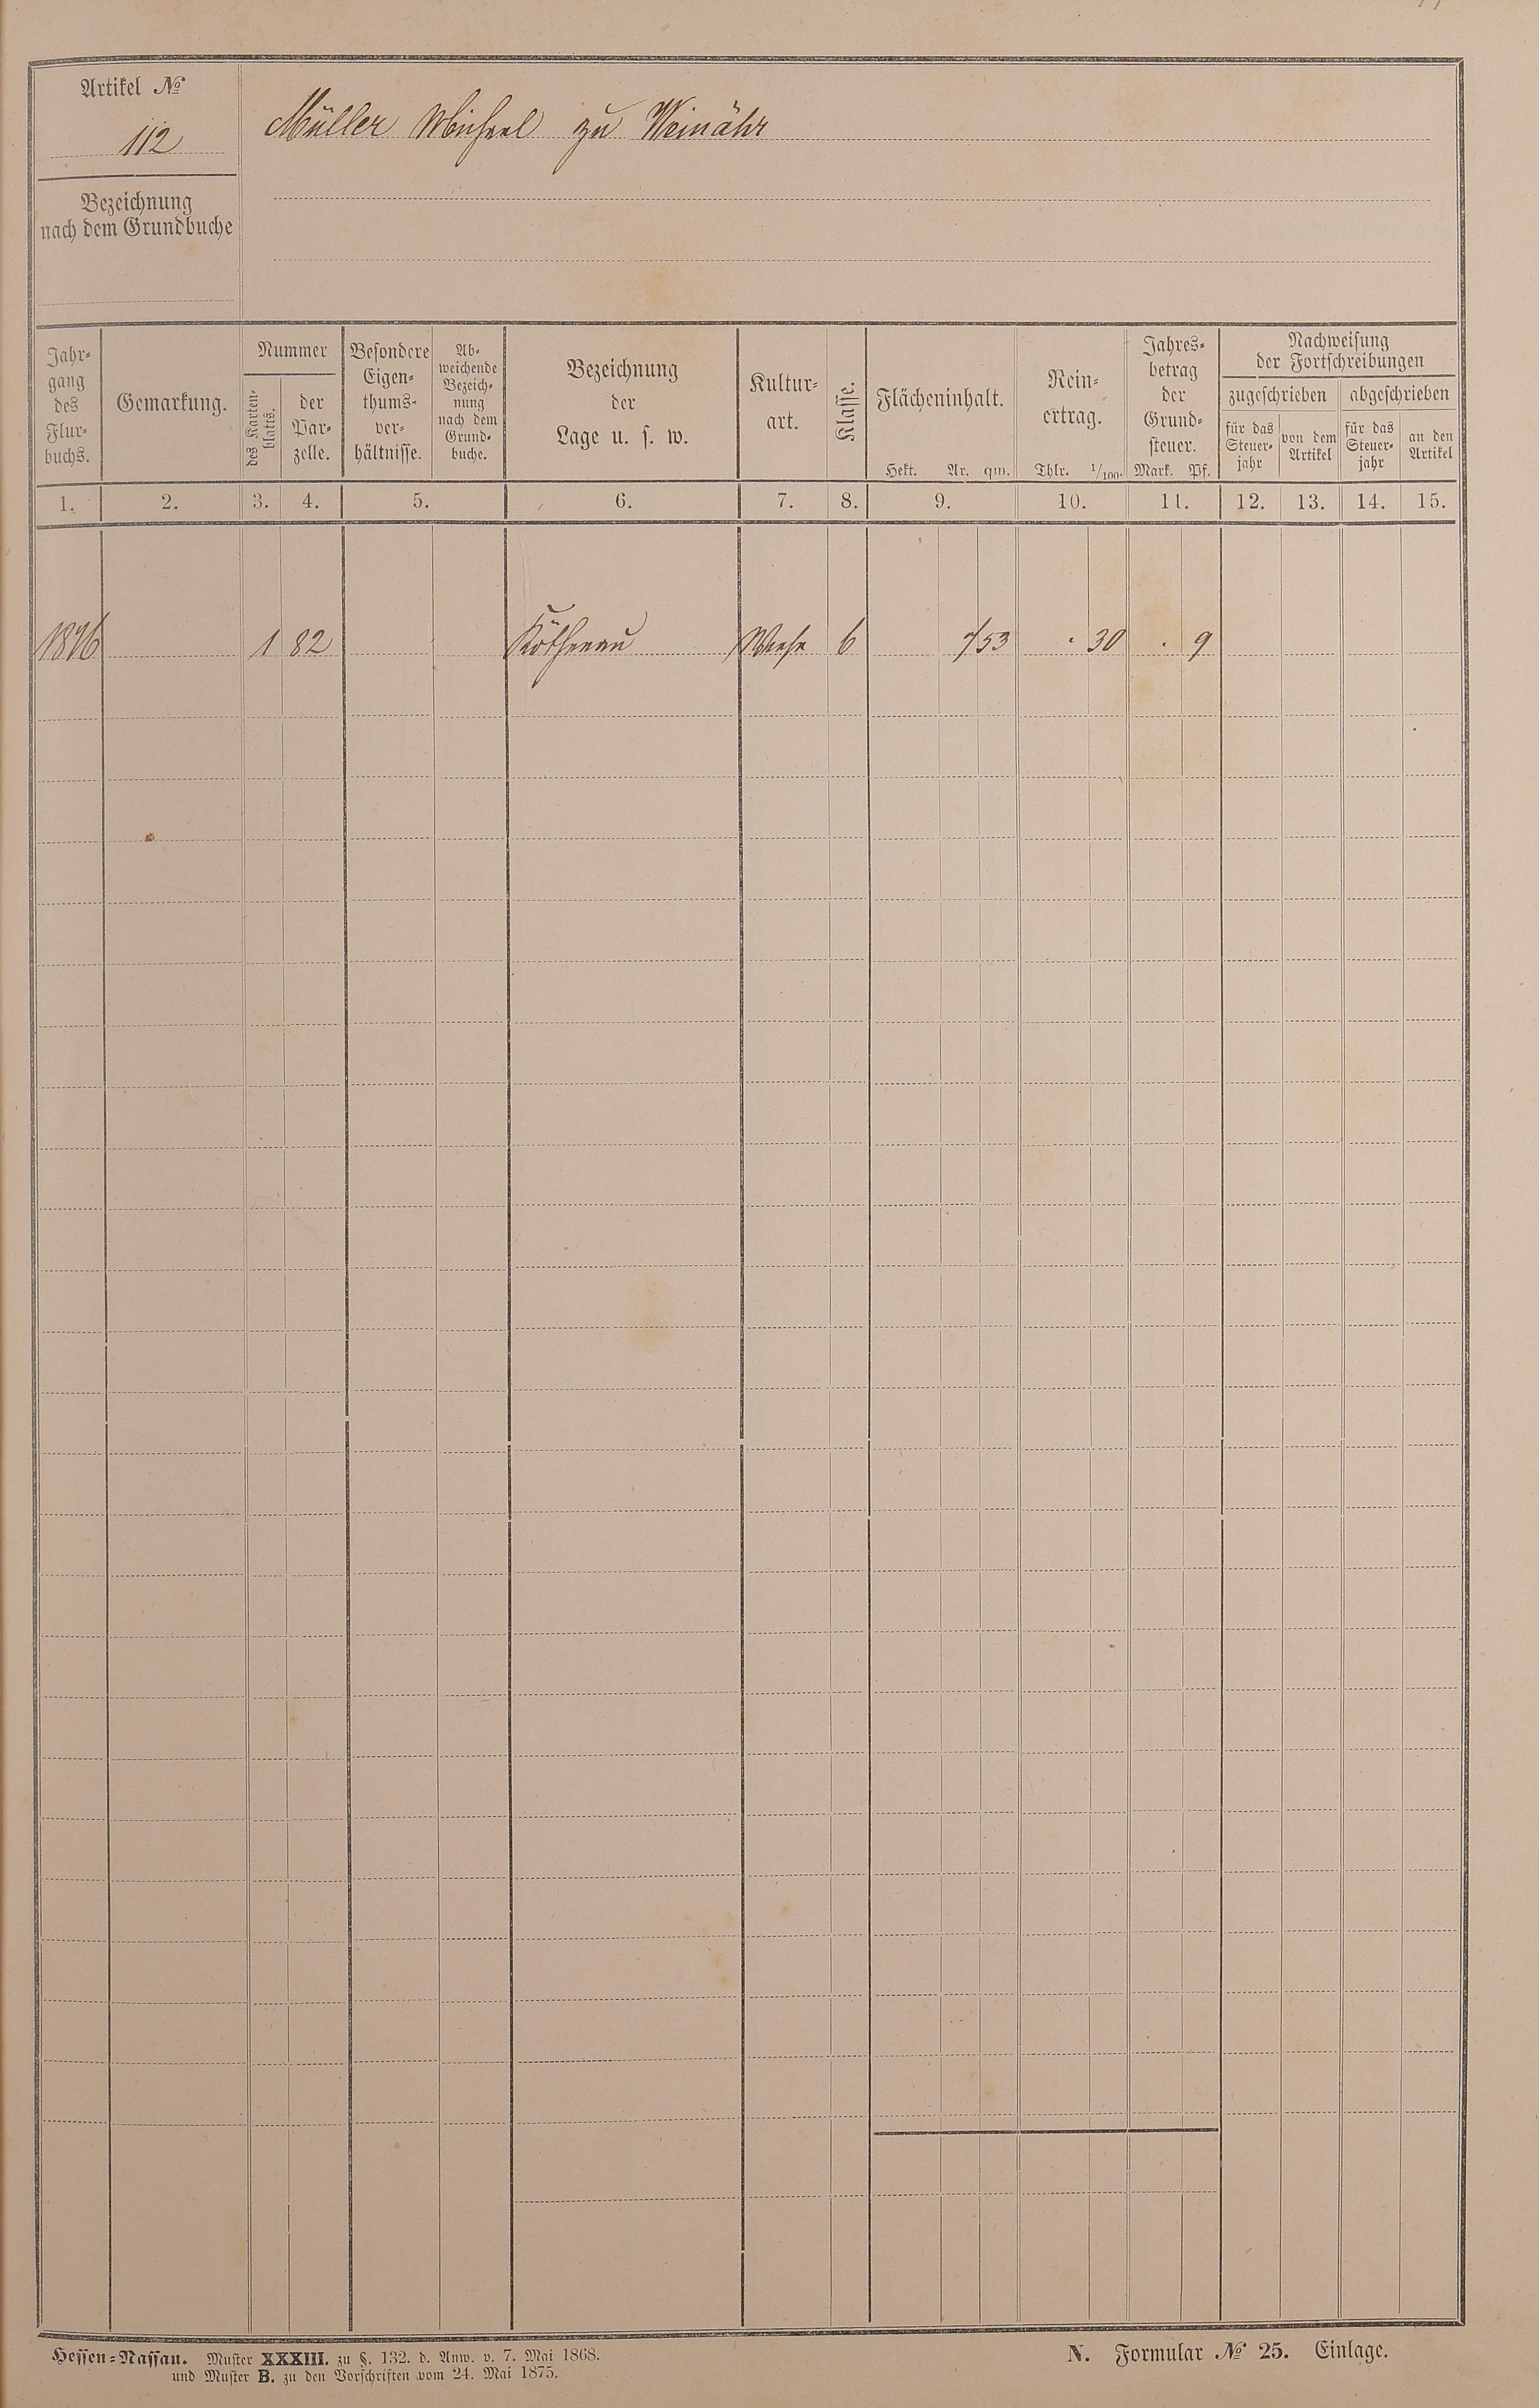 Artikel №
112
Müller Michael zu Weinähr
Bezeichnung
nach dem Grundbuche
Jahr-
gang
des
Flur-
buchs.
Gemarkung.
Nummer
des Karten-
blatts.
der
Par-
zelle.
Besondere
Eigen-
thums-
ver-
hältnisse.
Ab-
weichende
Bezeich-
nung
nach dem
Grund-
buche.
Bezeichnung
der
Lage u. s. w.
Kultur-
art.
Klasse.
Flächeninhalt.
Hekt. Ar. qm.
Rein-
ertrag.
Thlr. 1/100.
Jahres-
betrag
der
Grund-
steuer.
Mark. Pf.
Nachweisung
der Fortschreibungen
zugeschrieben abgeschrieben
für das
Steuer-
jahr
von dem
Artikel
für das
Steuer-
jahr
an den
Artikel
1. 2. 3. 4. 5. 6. 7. 8. 9. 10. 11. 12. 13. 14. 15.
1876 1 82 Wiese 6 53 . 30 . 9
Hessen-Nassau. Muster XXXIII. zu §. 132. d. Anw. v. 7. Mai 1868.
und Muster B. zu den Vorschriften vom 24. Mai 1875.
N. Formular № 25. Einlage.